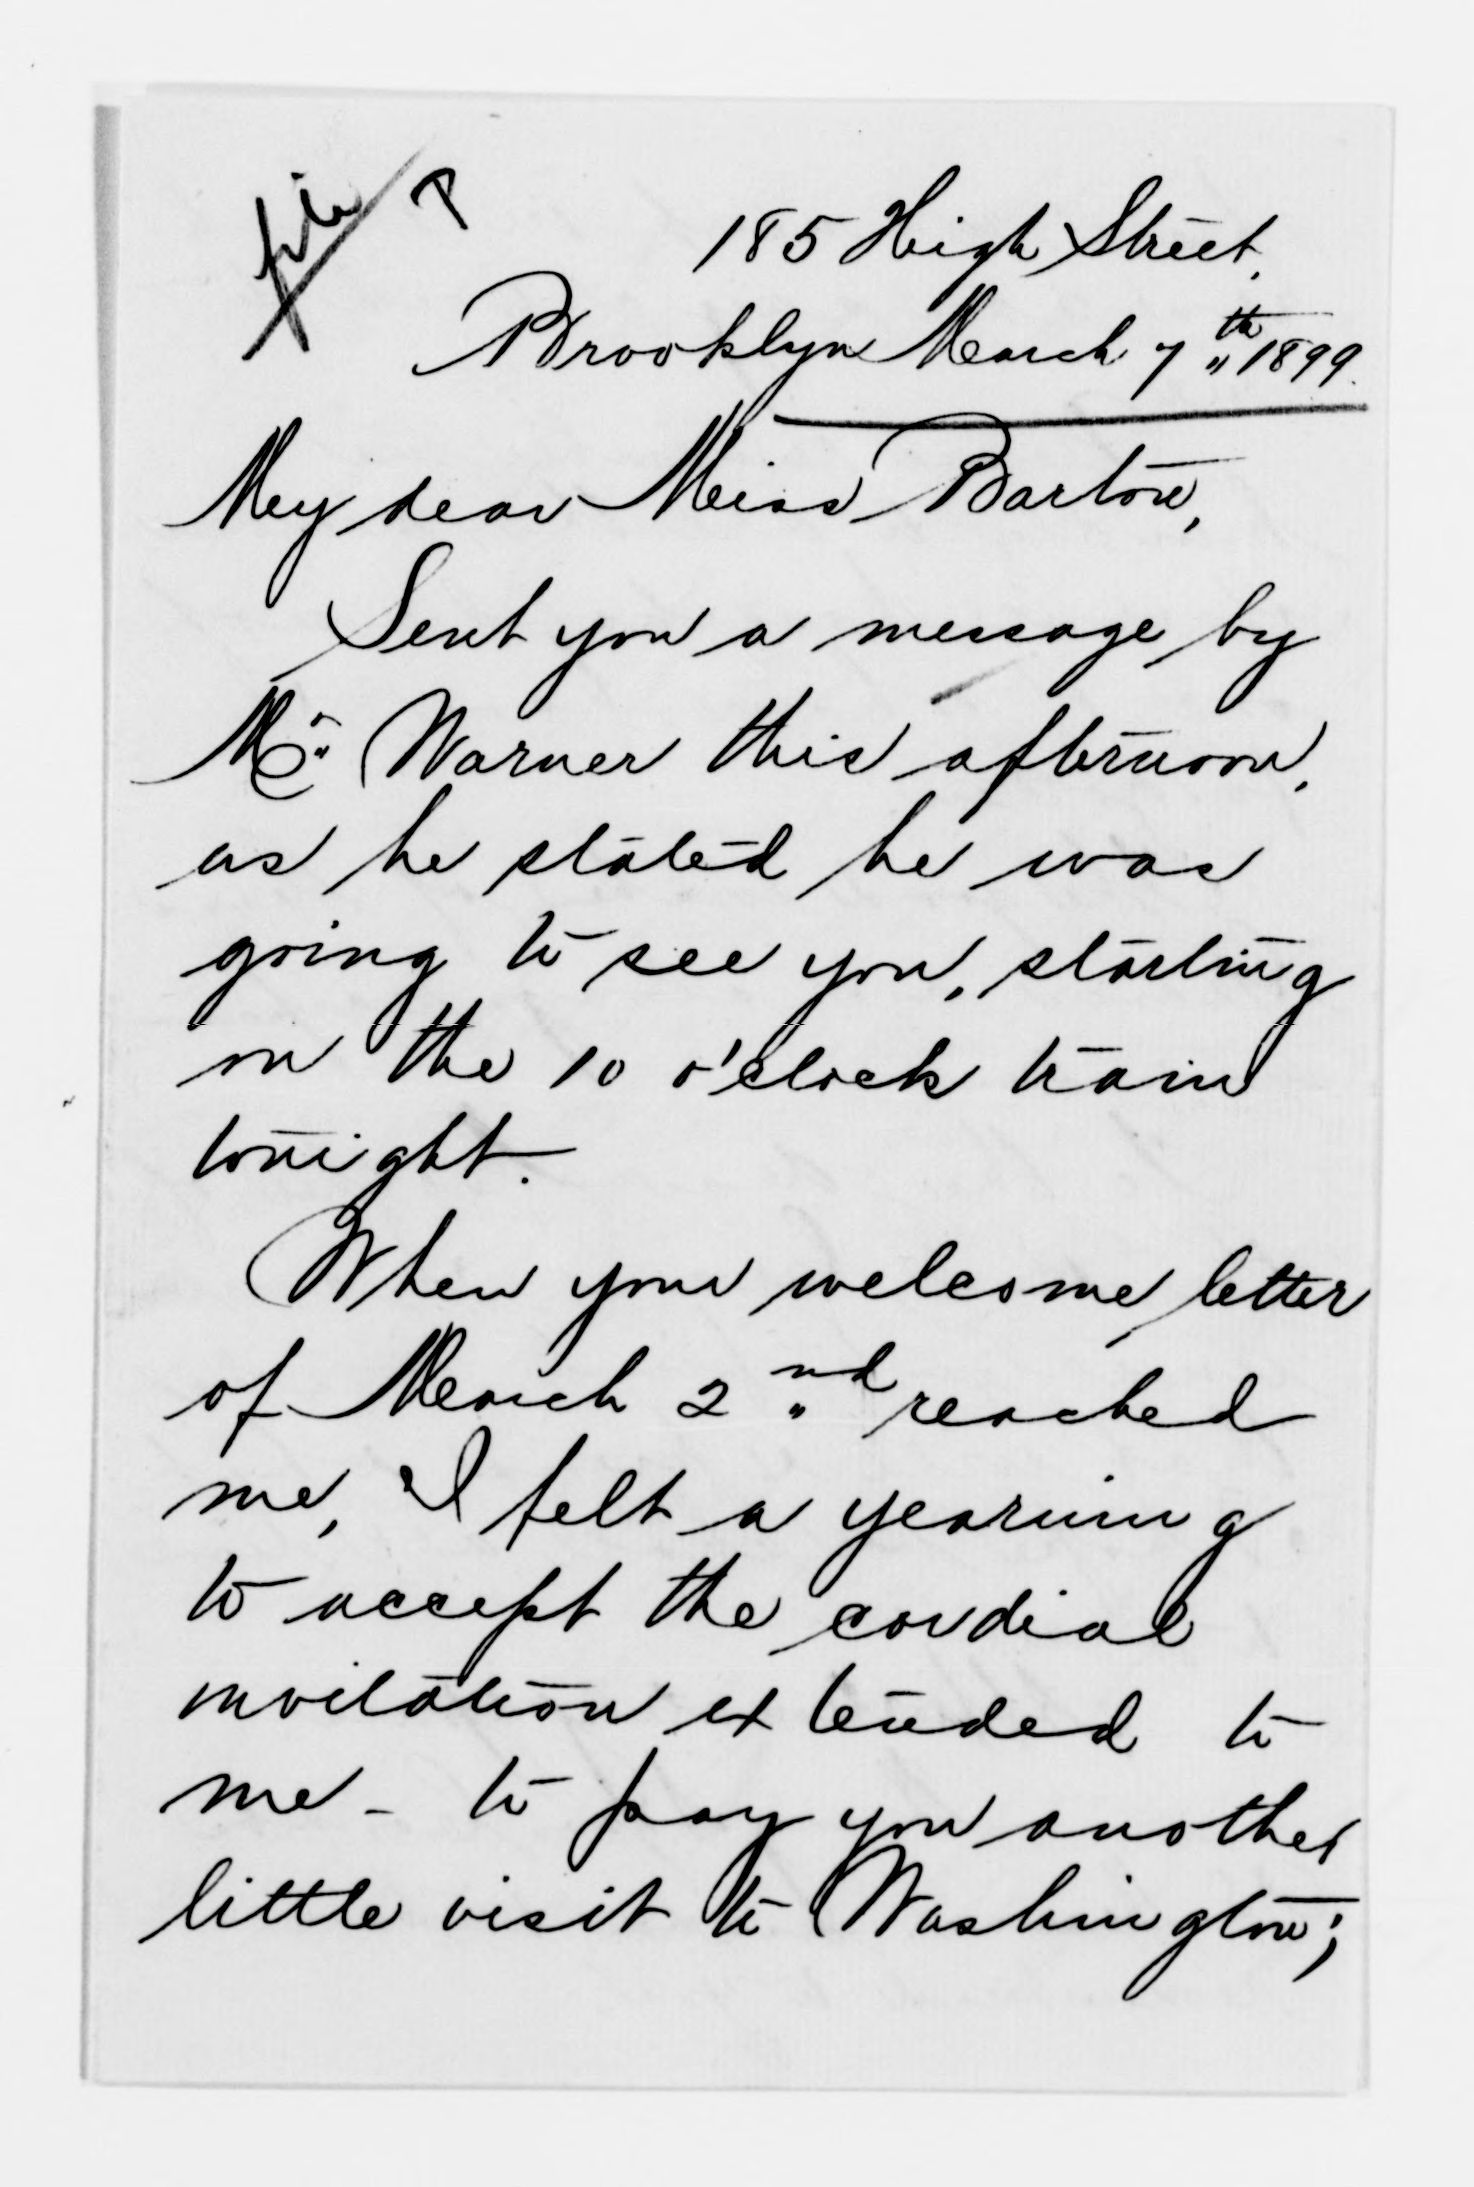 file P
185 High Street.
Brooklyn March 7th 1899.
My dear Miss Barton,
Sent you a message by
Mr. Warner this afternoon,
as he stated he was
going to see you, starting
on the 10 o'clock train
tonight.
When your welcome letter
of March 2nd reached
me, I felt a yearning
to accept the cordial
invitation extended to
me - to pay you another
little visit to Washington;